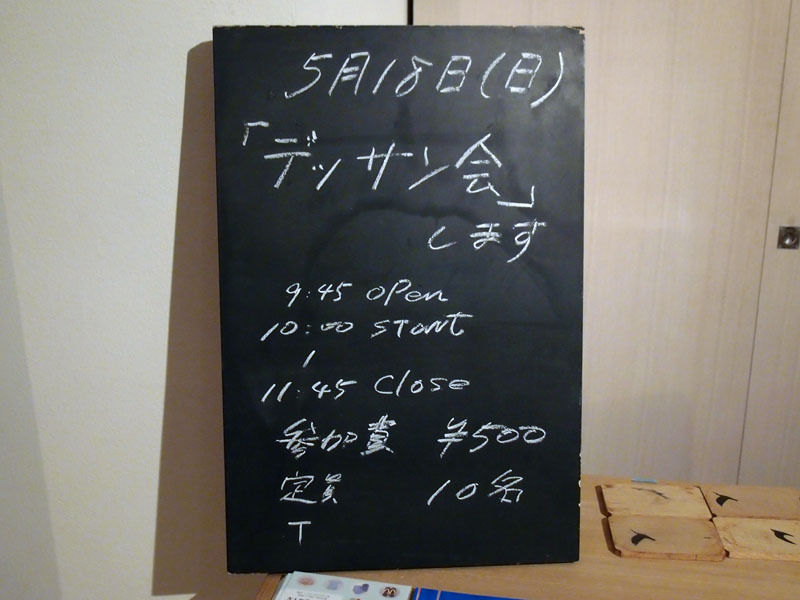 5月18日(日)
「デッサン会」
します
9:45 open
10:00 START
|
11:45 Close
参加費 ¥500
定員 10名
T